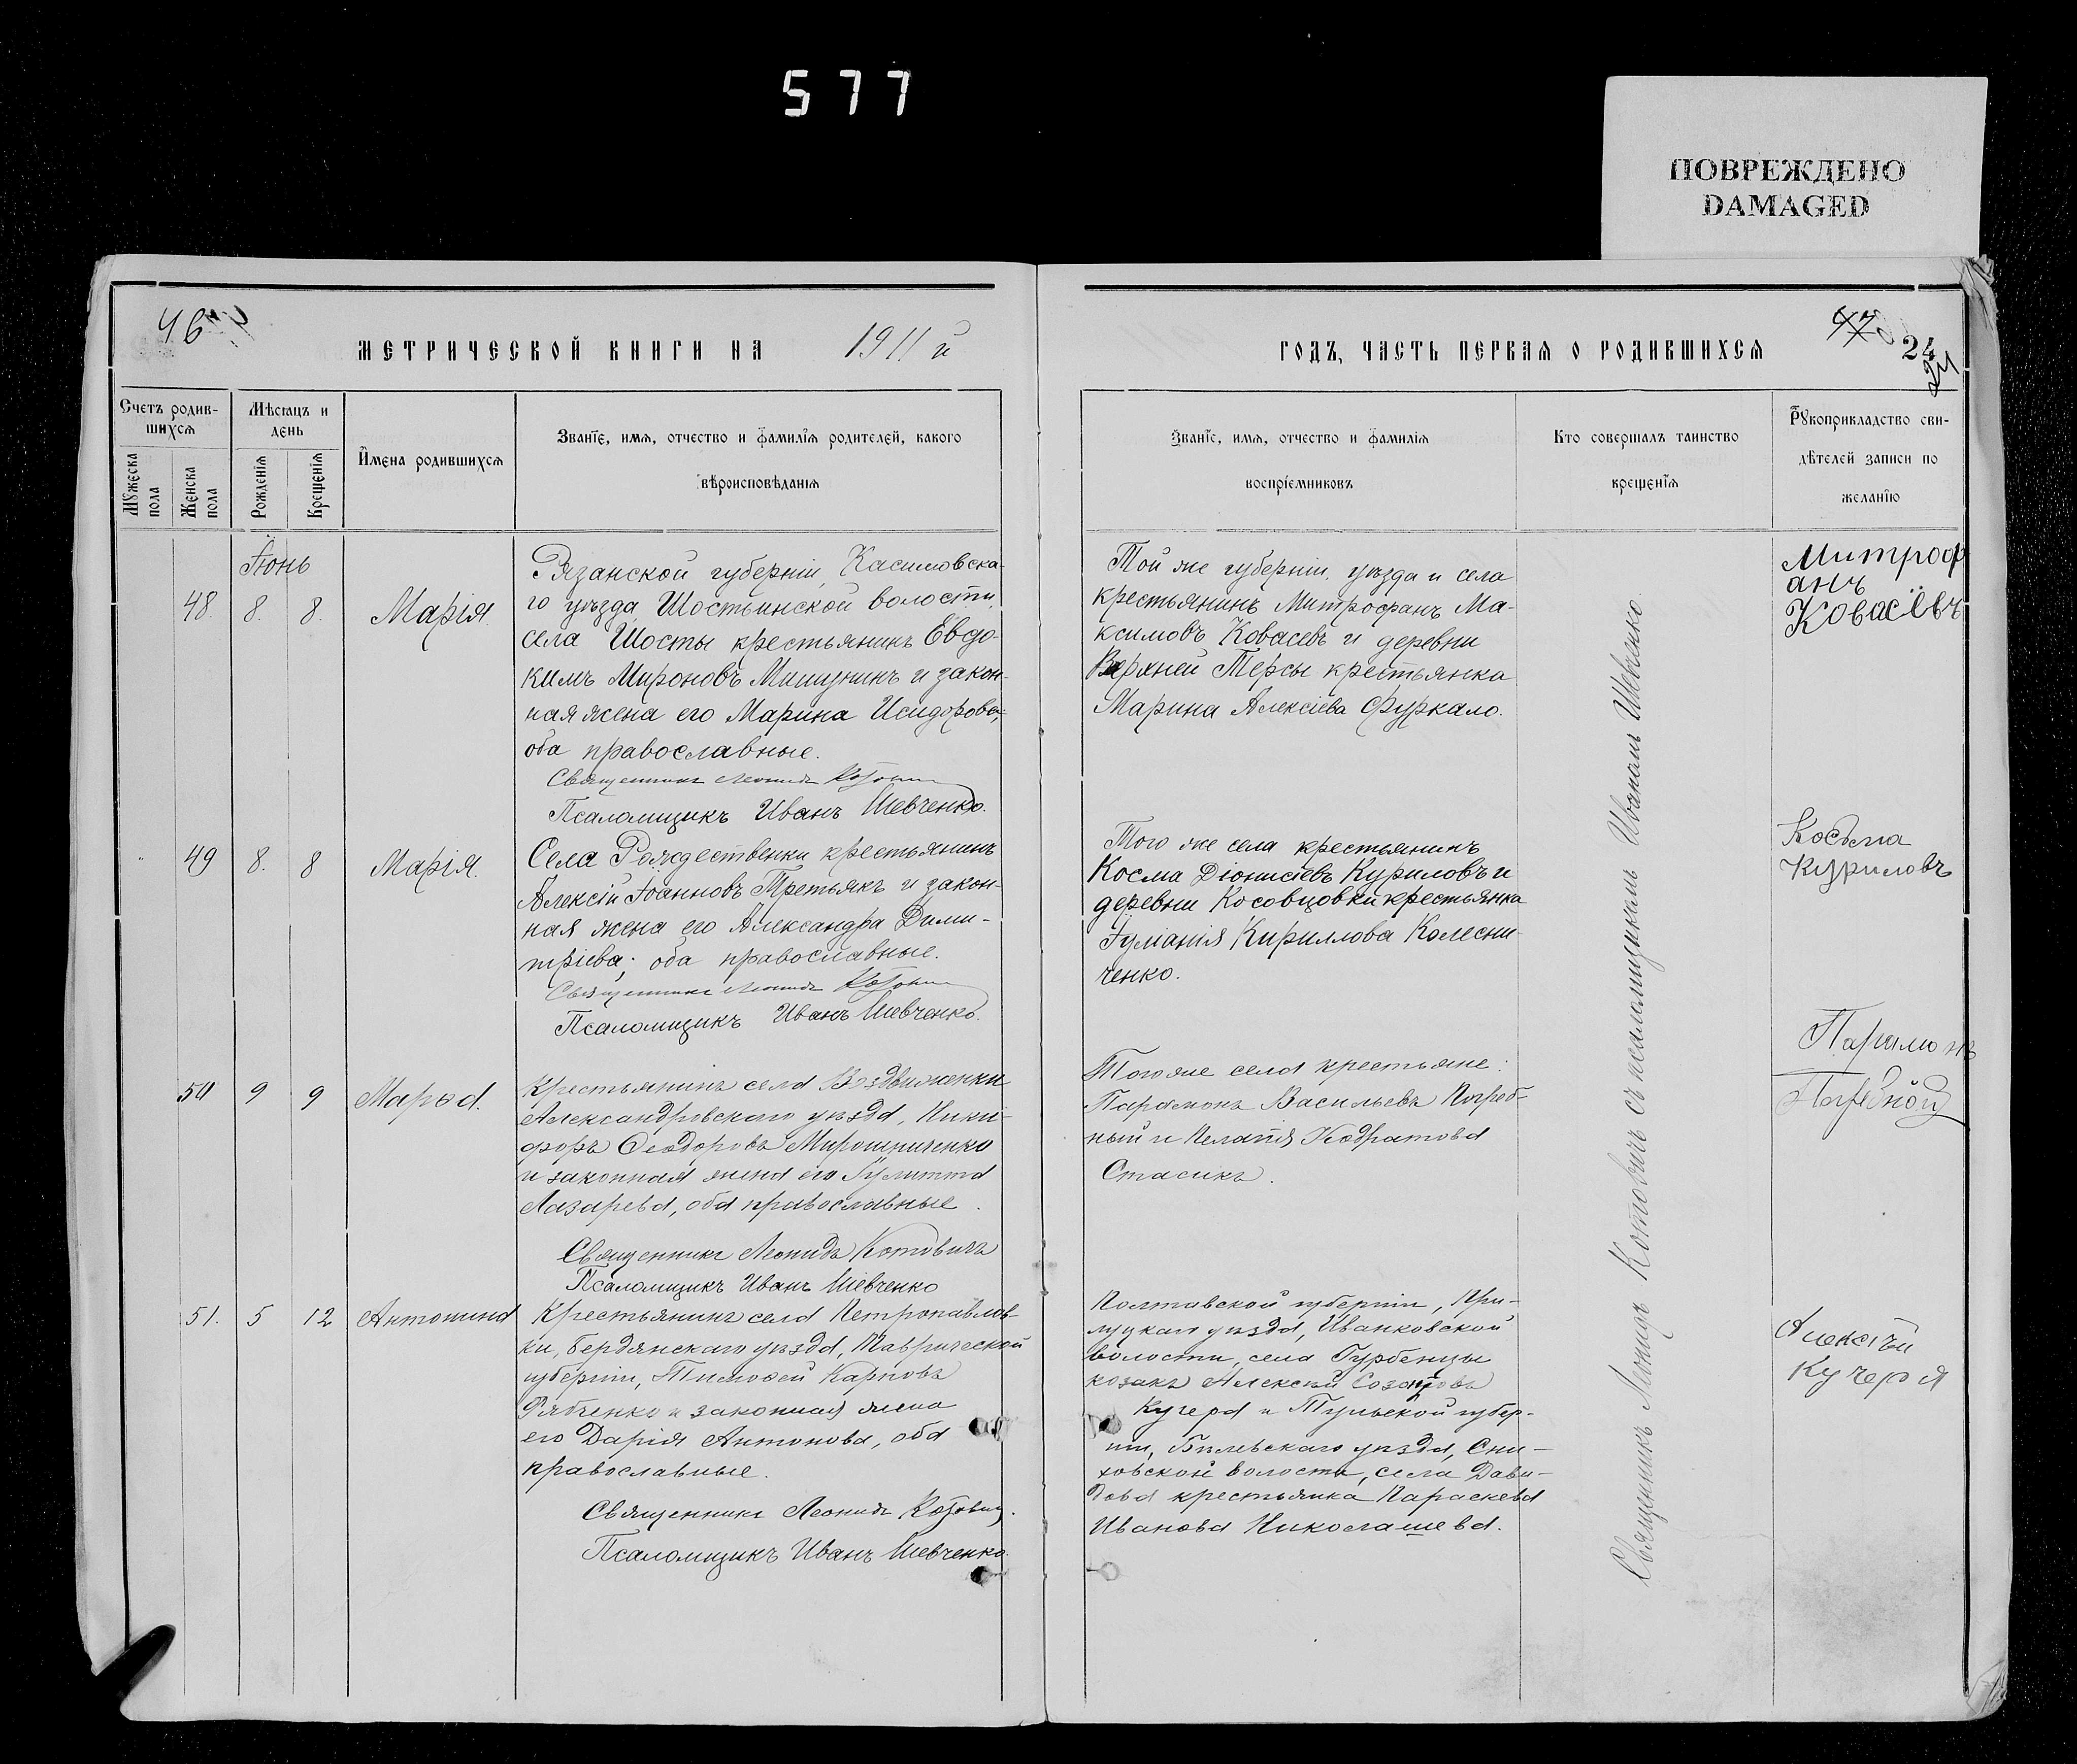 577
ПОВРЕЖДЕНО
DAMAGED
46
МЕТРИЧЕСКОЙ КНИГИ НА 1911 й
Счетъ родив-
шихся
Мѣсяцъ и
день
Имена родившихся
Званіе, имя, отчество и фамилія родителей, какого
вѣроисповѣданія
Мужеска
пола
Женска
пола
Рожденія
Крещенія
Іюнь
48. 8. 8. Марія.
Рязанской губерніи, Касимовска-
го уѣзда, Шостьинской волости,
села Шосты крестьянинъ Евдо-
кимъ Мироновъ Мишунинъ и закон-
ная жена его Марина Исидорова,
оба православные.
Священникъ Леонидъ Котовичъ
Псаломщикъ Иванъ Шевченко.
49 8. 8 Марія.
Села Рождественки крестьянинъ
Алексій Іоанновъ Третьякъ и закон-
ная жена его Александра Дими-
тріева; оба православные.
Священникъ Леонидъ Котовичъ
Псаломщикъ Иванъ Шевченко.
50 9 9 Марѳа.
Крестьянинъ села Воздвиженки
Александровскаго уѣзда, Ники-
форъ Ѳеодоровъ Мирошниченко
и законная жена его Іулитта
Лазарева, оба православные.
Священникъ Леонидъ Котовичъ
Псаломщикъ Иванъ Шевченко
51. 5 12 Антонина
Крестьянинъ села Петропавлов-
ки, Бердянскаго уѣзда, Таврической
губерніи, Тимоѳей Карповъ
Рябченко и законная жена
его Дарія Антонова, оба
православные.
Священникъ Леонидъ Котовичъ.
Псаломщикъ Иванъ Шевченко.
47
24
24
ГОДЪ, ЧАСТЬ ПЕРВАЯ О РОДИВШИХСЯ
Званіе, имя, отчество и фамилія
воспріемниковъ
Кто совершалъ таинство
крещенія
Рукоприкладство сви-
дѣтелей записи по
желанію
Той же губерніи, уѣзда и села
крестьянинъ Митрофанъ Ма-
ксимовъ Ковасевъ и деревни
Верхней Терсы крестьянка
Марина Алексіева Фуркало.
Митроф
анъ
Ковасіевъ
Того же села крестьянинъ
Косма Діонисіевъ Куриловъ и
деревни Косовцовки крестьянка
Іуліанія Кириллова Колесни-
ченко.
Косьма
Куриловъ
Того же села крестьяне:
Парамонъ Васильевъ Погреб-
ный и Пелагія Кодратова
Стасикъ.
Парамонъ
Погребной
Полтавской губерніи, При-
луцкаго уѣзда, Иванковской
волости, села Гурбенцы
козакъ Алексѣй Созонтовъ
Кучера и Тульской губер-
ніи, Бѣлевскаго уѣзда, Сни-
ховской волости, села Дави-
дова крестьянка Параскева
Иванова Николашева.
Алексѣй
Кучеря
Священникъ Леонидъ Котовичъ съ псаломщикомъ Иваномъ Шевченко.